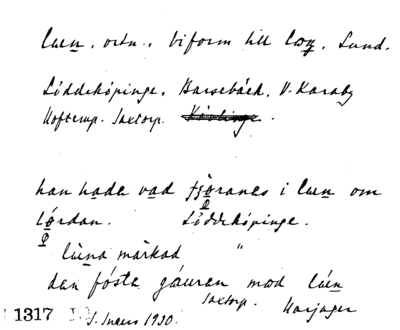 luen, ortn., biform till loŋ, Lund.
Löddeköpinge, Barsebäck, V. Karaby
Hofterup. Saxtorp.
han hade vad fjǫranes i luen om
lǫrdan. Löddeköpinge.
lùna märkad "
dan fósta gáuran mod lúen
Saxtorp. Harjager
1317 S. Ingers 1930.